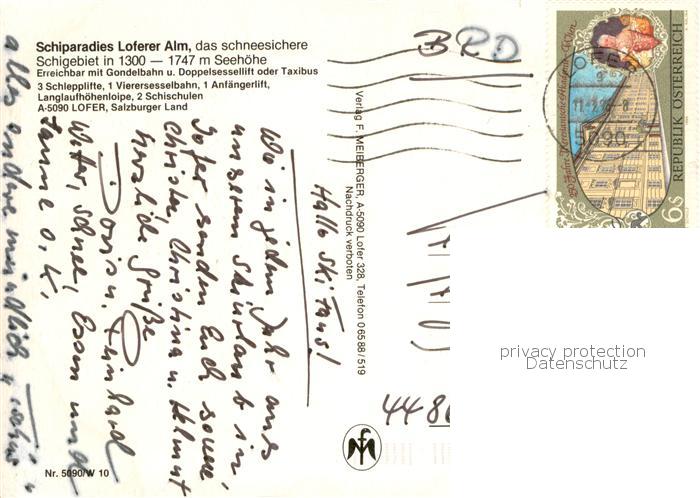 Schiparadies Loferer Alm, das schneesichere
Schigebiet in 1300 — 1747 m Seehöhe
Erreichbar mit Gondelbahn u. Doppelsessellift oder Taxibus
3 Schlepplifte, 1 Vierersesselbahn, 1 Anfängerlift,
Langlaufhöhenloipe, 2 Schischulen
A-5090 LOFER, Salzburger Land
Hallo Ski Fans!
Wie in jedem Jahr aus
unserem Skiurlaub in
Lofer senden Euch sowie
Christer, Christina u. Helmut
herzliche Grüße
Doris u. Reinhard
Wetter, Schnee, Essen und
Laune o.k.
alles andere mündlich
Verlag F. MEIBERGER, A-5090 Lofer 328, Telefon 0 65 88 / 519
Nachdruck verboten
BRD
REPUBLIK ÖSTERREICH
6s
5090
448
privacy protection
Datenschutz
Nr. 5090/W 10